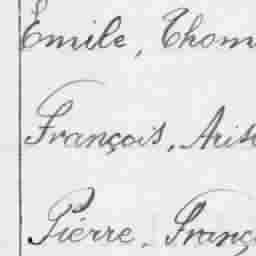 Émile, Thom
François, Aris
Piérre, Franç